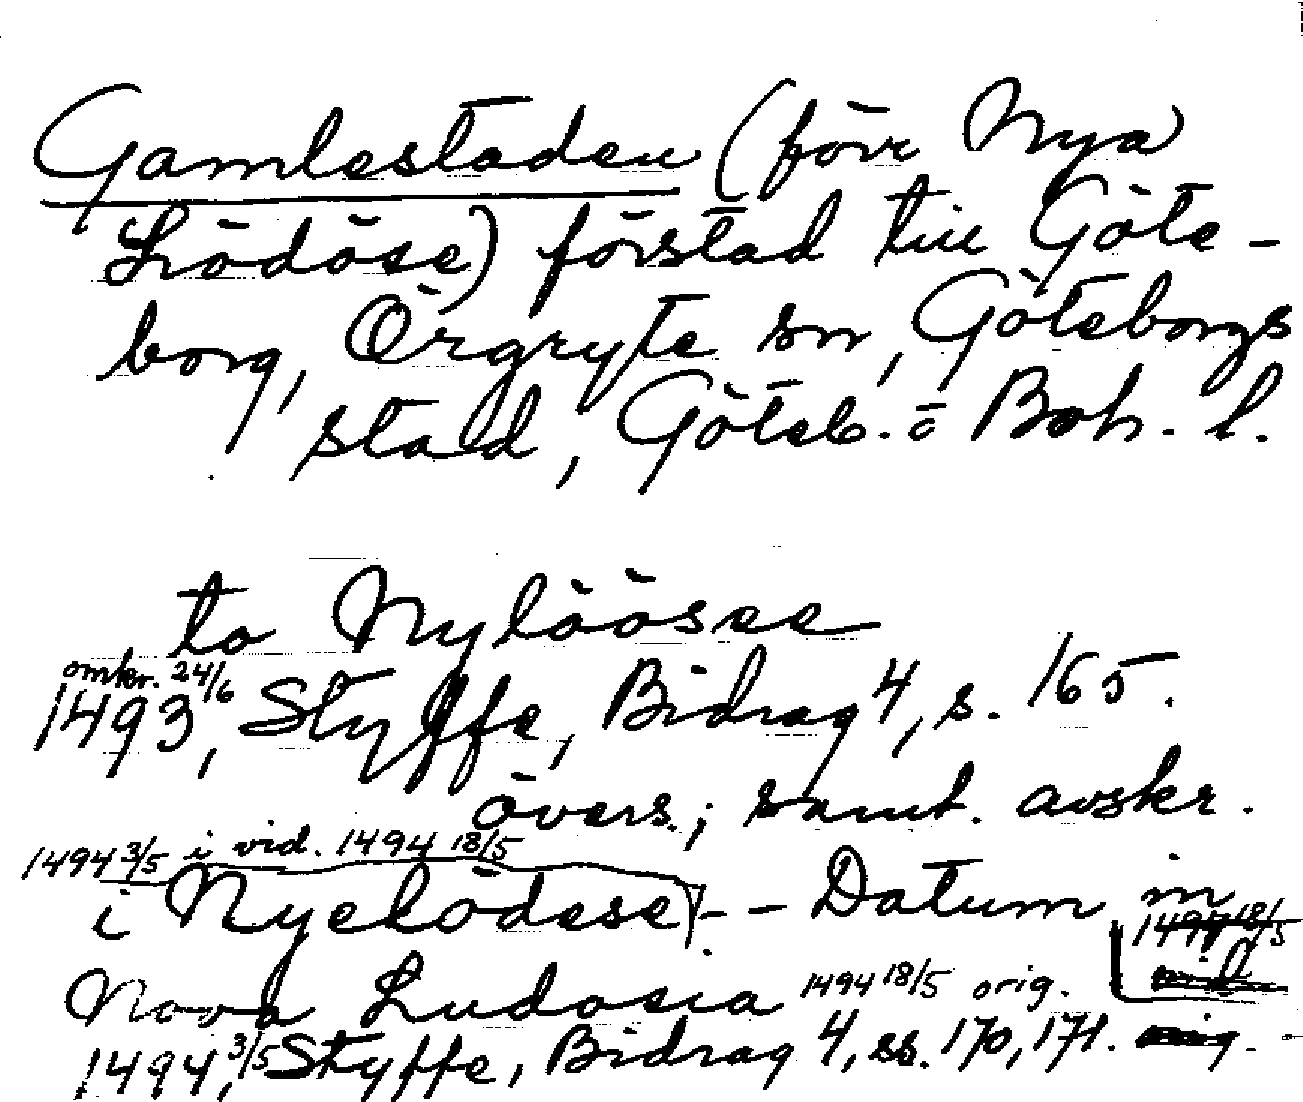 Gamlestaden (förr Nya
Lödöse) förstad till Göte-
borg, Örgryte sn, Göteborgs
stad, Göteb. o Boh. l.
to Nylöösee
omkr. 24/6
1493, Styffe, Bidrag 4, s. 165.
övers.; samt. avskr.
1494 3/5 i vid. 1494 18/5
i Nyelödese -- Datum in
1494 18/5
Nova Ludosia 1494 18/5 orig.
1494, 3/5 Styffe, Bidrag 4, ss. 170, 171.